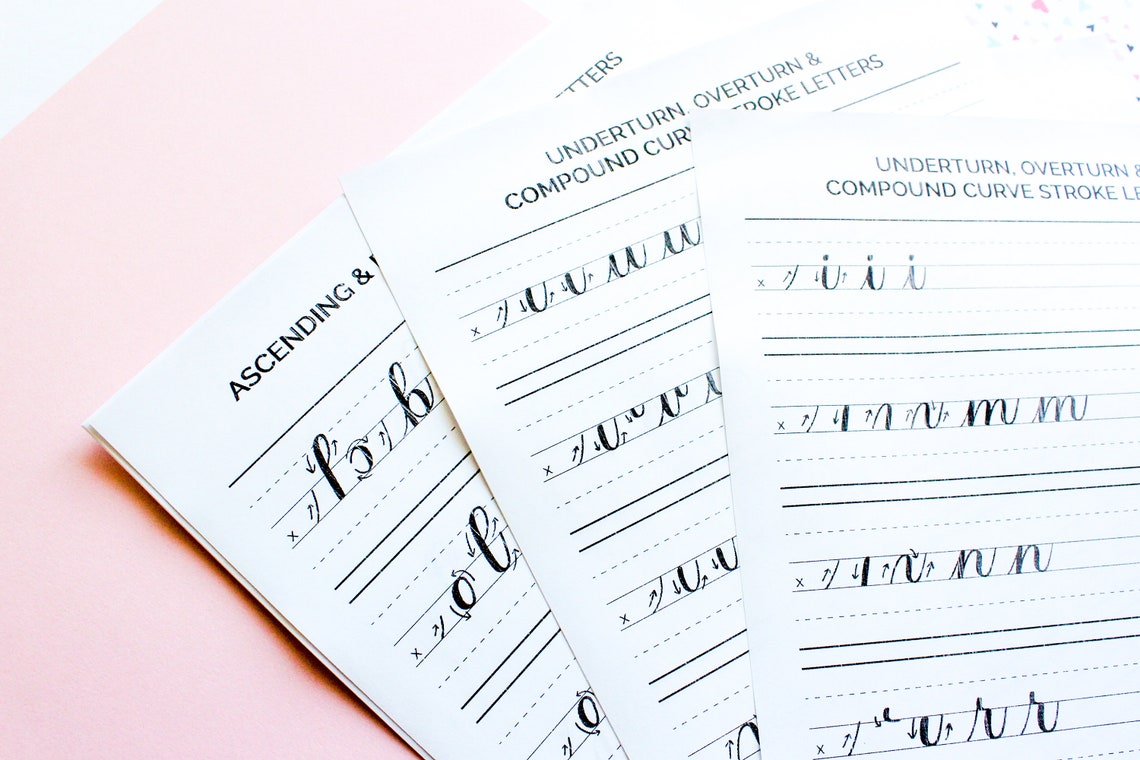 ASCENDING &
TTERS
x b
x
UNDERTURN, OVERTURN &
COMPOUND CURVE STROKE LETTERS
x u u
x
x
UNDERTURN, OVERTURN &
COMPOUND CURVE STROKE LE
x i i i
x m m
x n n
x r r